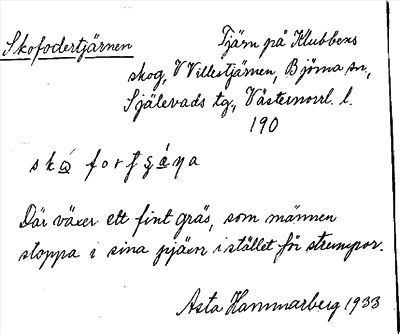 Skofodertjärnen
Tjärn på Klubbens
skog, V Villestjärnen, Björna sn,
Själevads tg., Västernorrl. l.
190
Där växer ett fint gräs, som männen
stoppa i sina pjäxn i stället för strumpor.
Asta Hammarberg 1933